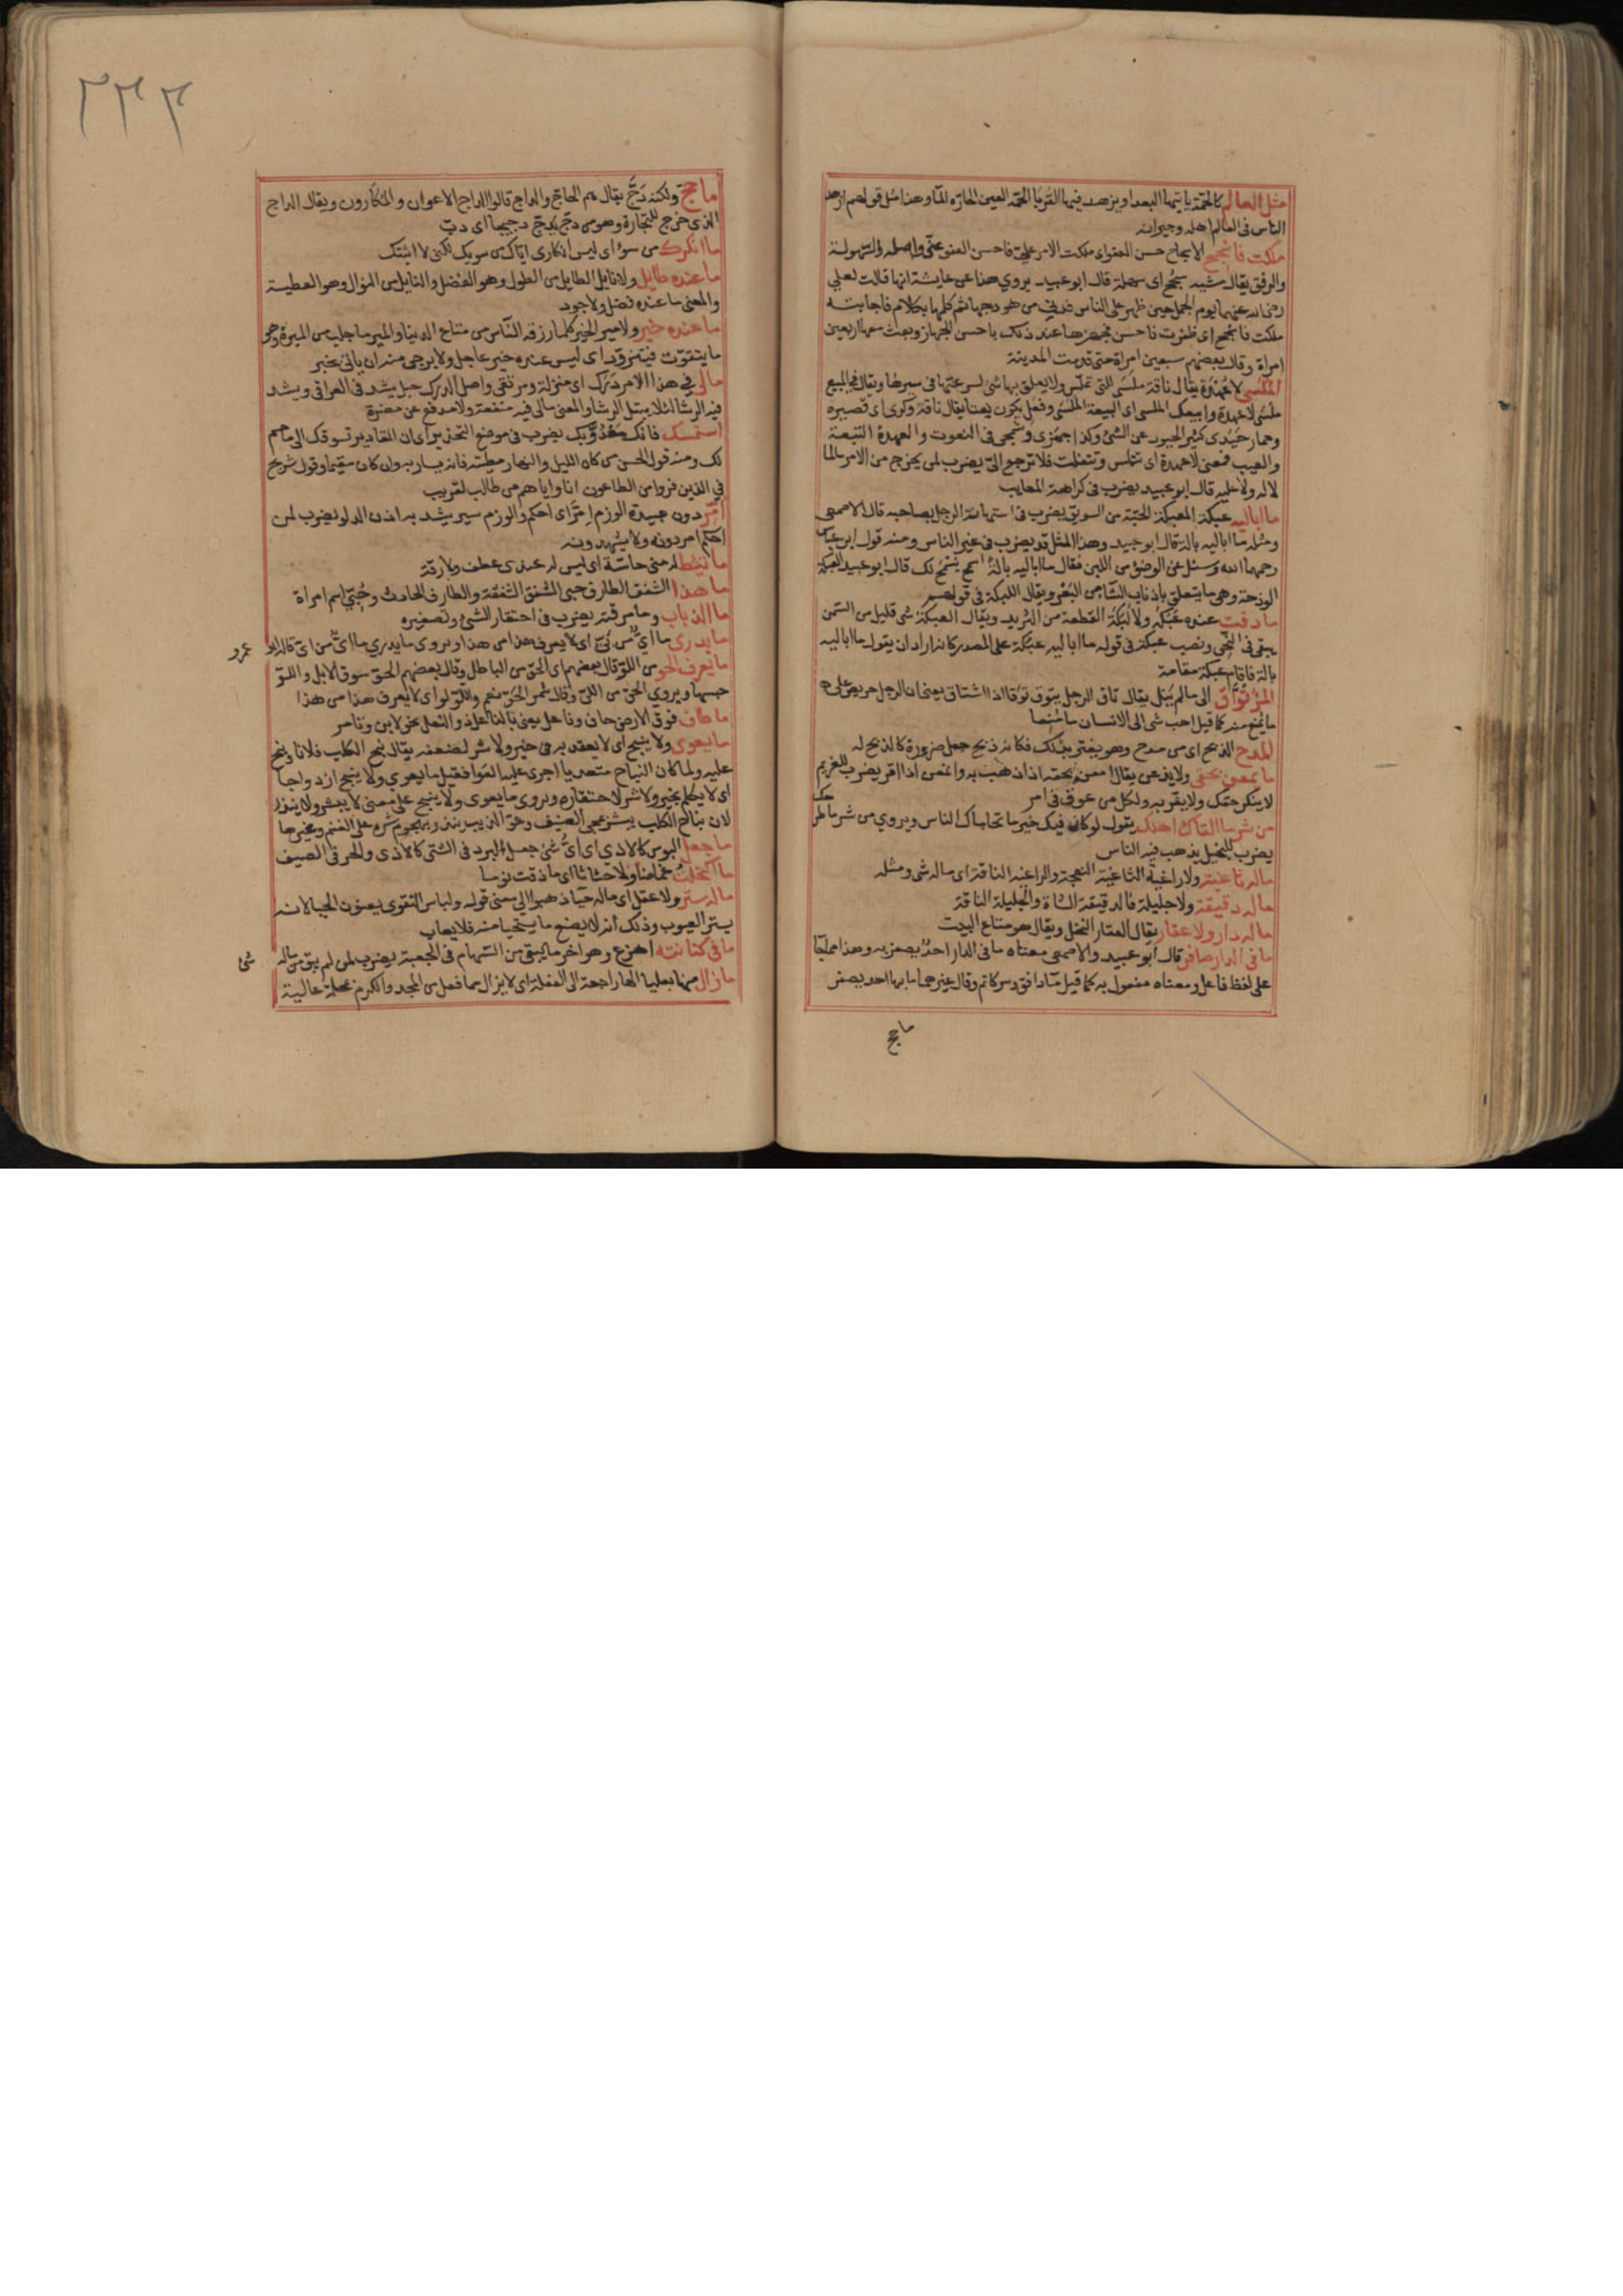 مثل العالم كالحمة ياتيها البعدا ويزهد فيها القربا الحمة العين الحارة الماء وهذا مثل قولهم ازهد
الناس فى العالم اهله وجيرانه
ملكت فاسجح الاسجاح حسن العفو اى ملكت الامر على فاحسن العفو عنى واصله السهولة
والرفق يقال مشية سجح اى سهلة قال ابو عبيد يروي هذا عن عايشة انها قالت لعلى
رضى الله عنهما يوم الجمل حين ظهر على الناس فدنى من هودجها ثم كلمها بكلام فاجابته
ملكت فاسجح اى ظفرت فاحسن فجهزها عند ذلك باحسن الجهاز وبعث معها اربعين
امراة وقال بعضهم سبعين امراة حتى قدمت المدينة
الملسى لا عهدة يقال ناقة ملسى للتى تملس ولا يعلق بها شى لسرعتها فى سيرها ويقال فى البيع
ملسى لا عهدة وابيعك الملسى اى البيعة الملسى وفعلى يكون نعتا يقال ناقة وكرى اى قصيرة
وحمار حيدى كثير الحيود عن الشئ وكذا جمزى وشمجى فى النعوت والعهدة التبعة
والعيب فمعنى لا عهدة اى تتملس وتتفلت فلا ترجع الى يضرب لمن يخرج من الامر سالما
لا له ولا عليه قال ابو عبيد يضرب فى كراهة المعايب
ما اباليه عبكة العبكة الحبة من السويق يضرب فى استهانة الرجل بصاحبه قال الاصمعى
ومثله ما اباليه بالة قال ابو عبيد وهذا المثل قد يضرب فى غير الناس ومنه قول ابن عباس
رحمهما الله وسئل عن الوضوء من اللبن فقال ما اباليه بالة اسمح يسمح لك قال ابو عبيد العبكة
الوذحة وهى ما يتعلق باذناب الشا من البعر ويقال اللبكة فى قولهم
ما ذقت عنده عبكة ولا لبكة القطعة من الثريد ويقال العبكة شى قليل من السمن
يبقى فى النحى ونصب عبكة فى قوله ما اباليه عبكة على المصدر كانه اراد ان يقول ما اباليه
بالة فاقام عبكة مقامه
المرء تواق الى ما لم ينل يقال تاق الرجل يتوق توقا اذا اشتاق يعنى ان الرجل حريص على
ما يمنع منه كما قيل احب شى الى الانسان ما منعا
المدح الذبح اى من مدح وهو يغتر بذلك فكانه ذبح جعل ضرورة كالذبح له
ما يمعن بحقى ولا يذعن يقال امعن بحقه اذا ذهب به واذعن اذا اقر يضرب للغريم
لا ينكر حقك ولا يقر به ولكل من عوق فى امر
من شر ما القاك اهلك يقول لو كان فيك خير ما تحاماك الناس ويروي من شر ما طرحك
يضرب للبخيل يذهب فيه الناس
ماله ثاغية ولا راغية الثاغية النعجة والراغية الناقة اى ماله شى ومثله
ماله دقيقة ولا جليلة فالدقيقة الشاة والجليلة الناقة
ماله دار ولا عقار يقال العقار النخل ويقال هو متاع البيت
ما فى الدار صافر قال ابو عبيد والاصمعى معناه ما فى الدار احد يصفر به وهذا مما جا
على لفظ فاعل ومعناه مفعول به كما قيل ماء دافق وسر كاتم وقال غيرهما ما بها احد يصفر
ما حج
٢٣٣
ما حج ولكنه دج يقال هم الحاج والداج قالوا الداج الاعوان والمكارون ويقال الداج
الذى خرج للتجارة وهو من دج يدج دجيجا اى دب
ما انكرك من سوء اى ليس انكارى اياك من سوء بك لكنى لا اثبتك
ما عنده طايل ولا نايل الطايل من الطول وهو الفضل والنايل من النوال وهو العطية
والمعنى ما عنده فضل ولا جود
ما عنده خير ولا مير الخير كلما رزقه الناس من متاع الدنيا والمير ما جلب من الميرة وهو
ما يتقوت فيتزود اى ليس عنده خير عاجل ولا يرجى منه ان ياتى بخير
مالى فى هذا الامر درك اى منزلة ومرتقى واصل الدرك حبل يشد فى العراقى ويشد
فيه الرشا لئلا يبتل الرشا والمعنى مالى فيه منفعة ولا مدفع عن مضرة
استمسك فانك معدو بك يضرب فى موضع التحذير اى ان المقادير تسوقك الى ما حم
لك ومنه قول الحسن من كان الليل والنهار مطيته فانه يسار به وان كان مقيما وقول شريح
فى الذين فروا من الطاعون انا واياهم من طالب لقريب
امر دون عبيدة الوذم امر اى احكم والوذم سير يشد به اذن الدلو يضرب لمن
احكم امر دونه ولا يشهدونه
ما تيط له منى حاسة اى ليس له عندى عطف ولا رقة
ما هذا الشفق الطارف حبى الشفق الشفقة والطارف الحادث وحبى اسم امراة
ما الذباب وما مرقته يضرب فى احتقار الشئ وتصغيره
ما يدرى ما اي من ىّ اى لا يعرف هذا من هذا ويروى ما يدري ما اى من اى قاله ابو عمرو
ما يعرف الحو من اللو قال بعضهم اى الحق من الباطل وقال بعضهم الحو سوق الابل واللو
حبسها ويروي الحى من اللى وقال شمر الحو نعم واللو لو اى لا يعرف هذا من هذا
ما طاف فوق الارض حاف وناعل يعنى بالناعل ذو النعل نحو لابن وتامر
ما يعوى ولا ينبح اى لا يعتد به فى خير ولا شر لضعفه يقال نبح الكلب فلانا ونبح
عليه ولما كان النباح متعديا اجرى عليه العوا فقيل ما يعوي ولا ينبح ازدواجا
اى لا يكلم بخير ولا شر لاحتقاره ويروى ما يعوى ولا ينبح على معنى لا يبشر ولا ينذر
لان نباح الكلب يبشر بمجى الضيف وعوا الذيب ينذر بهجوم شره على الغنم وغيرها
ما جعل البوس كالاذي اى اى شئ جعل البرد فى الشتى كالاذى والحر فى الصيف
ما اكتحلت غماضا ولا حثاثا اى ما ذقت نوما
ماله ستر ولا عقل اى ماله حيا ذهبوا الى معنى قوله ولباس التقوى يعنون الحيا لانه
يستر العيوب وذلك انه لا يصنع ما يستحيا منه فلا يعاب
ما فى كنانته اهزع وهو اخر ما يبقى من السهام فى الجعبة يضرب لمن لم يبق من ماله شئ
ما زال منها بعليا الها راجعة الى الفعلة اى لا يزال مما فعل من المجد والكرم بمحلة عالية